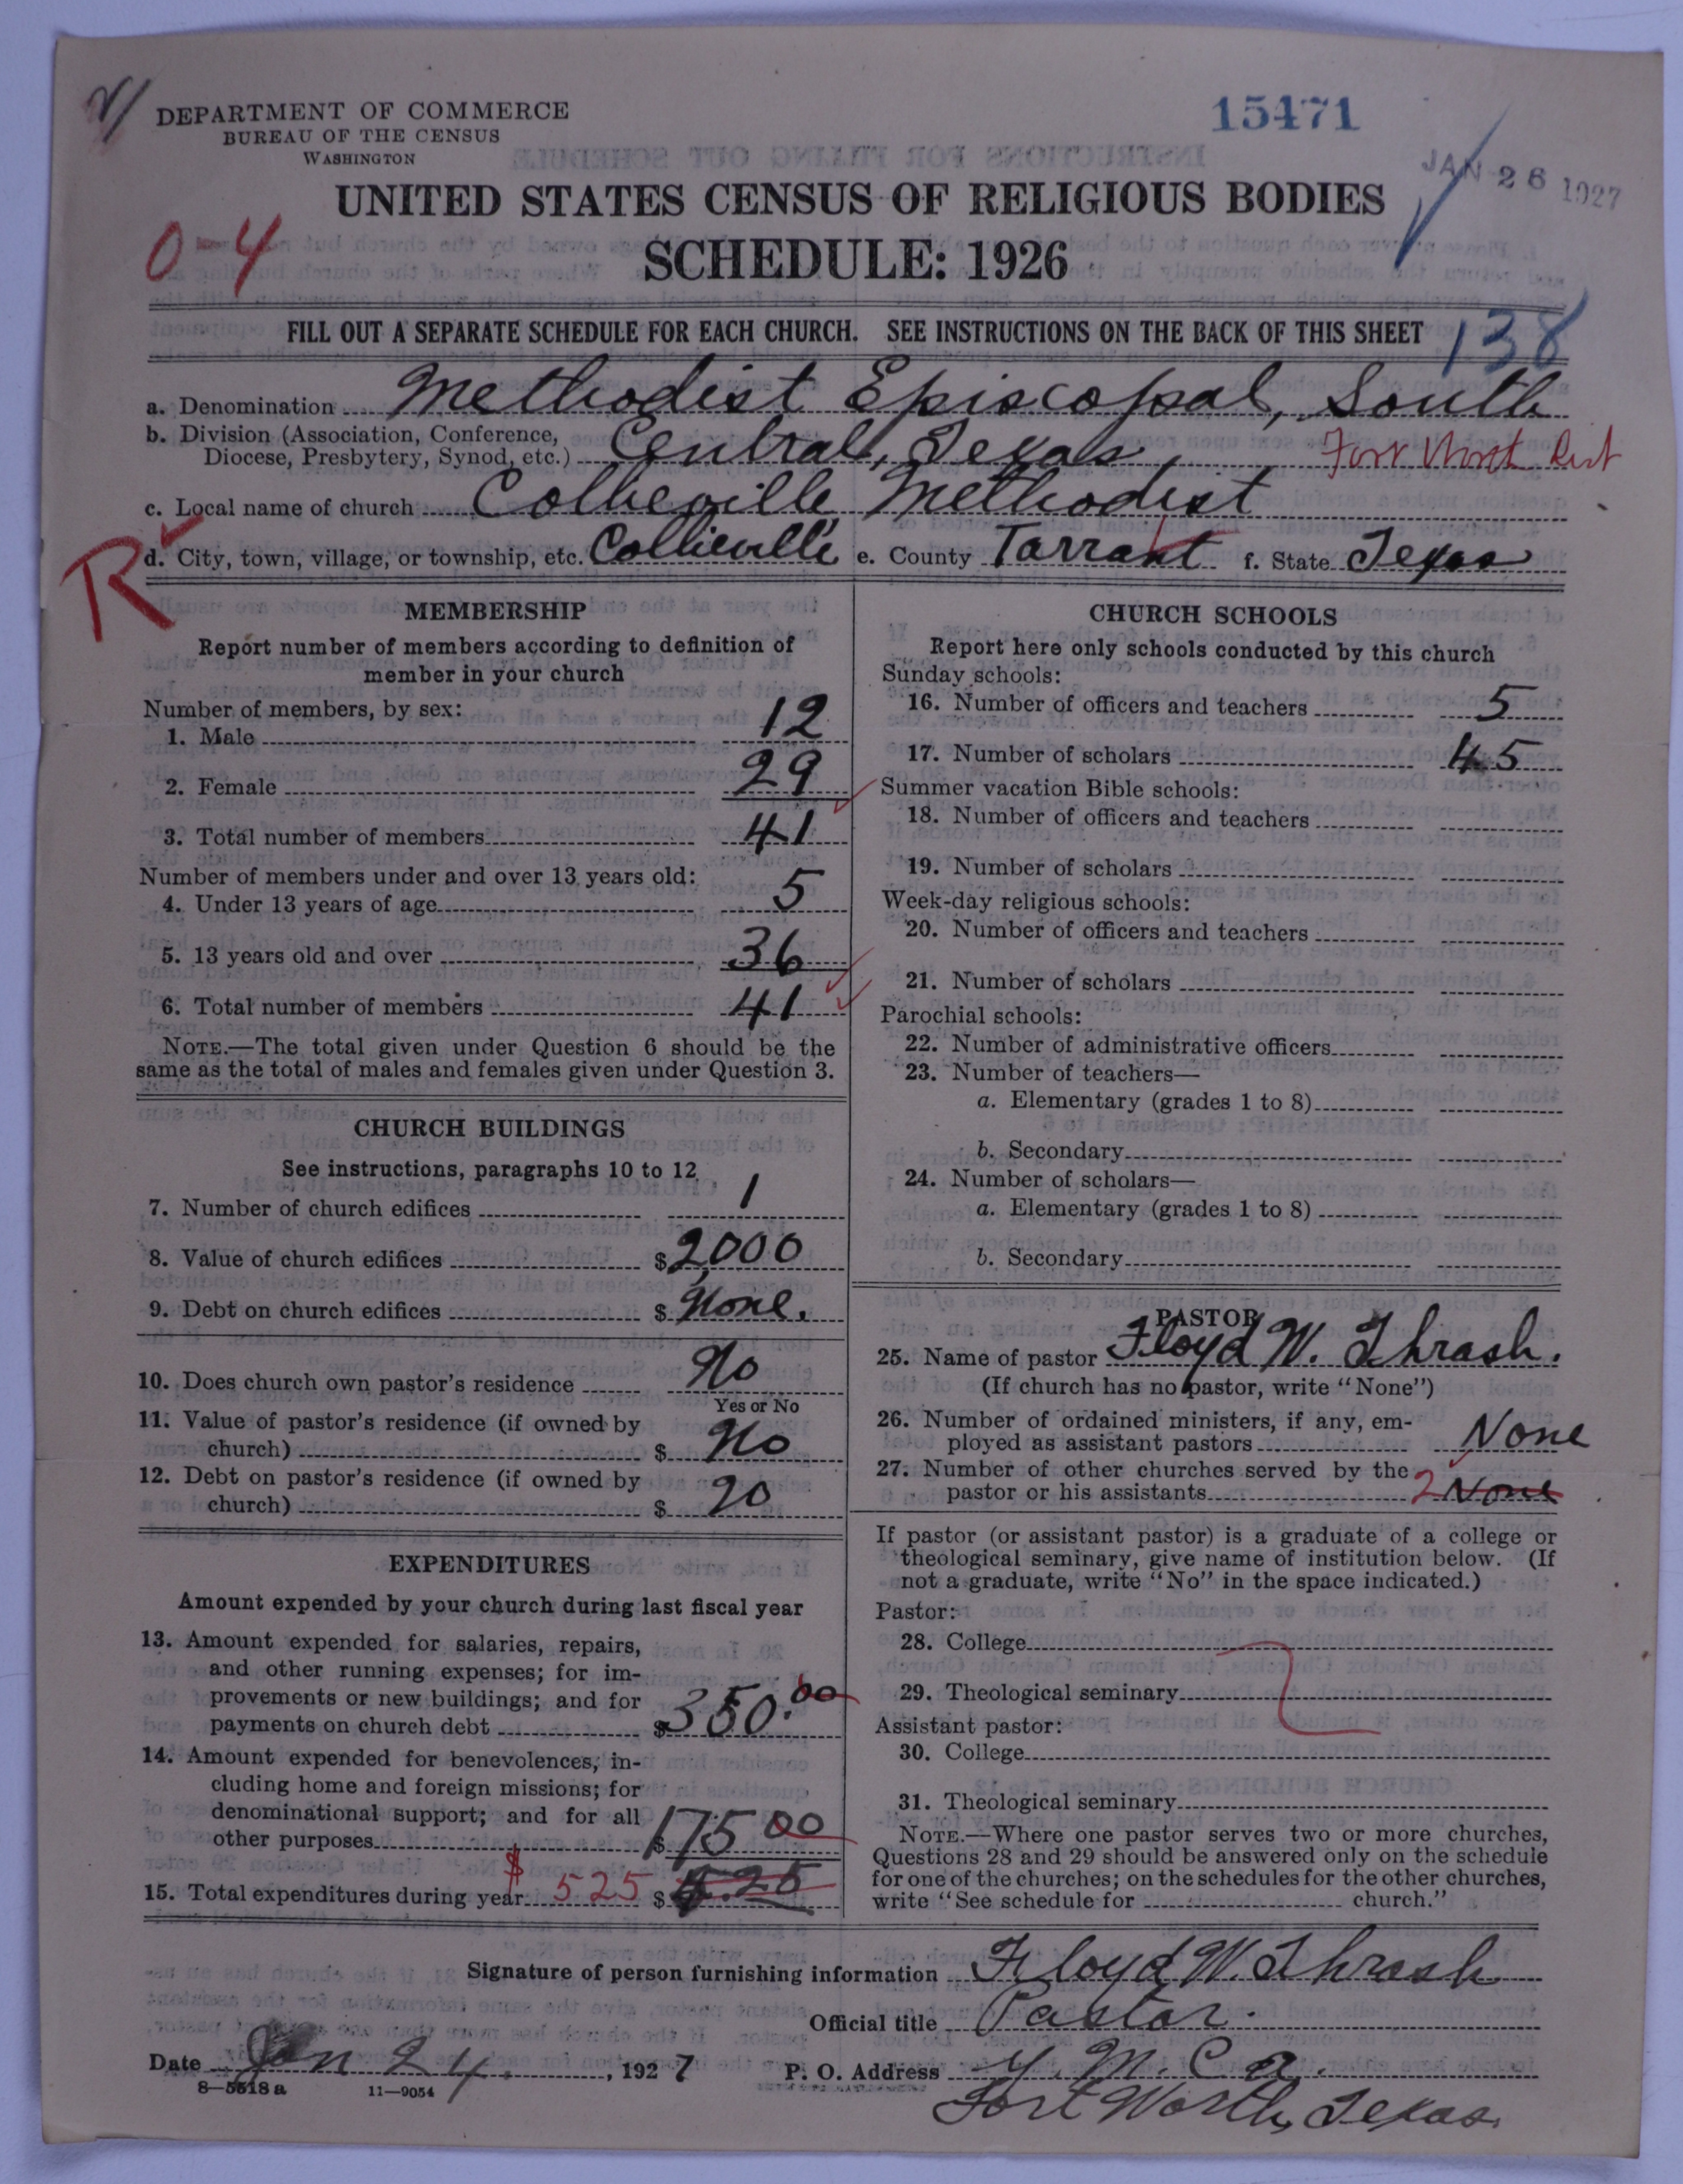 DEPARTMENT OF COMMERCE
BUREAU OF THE CENSUS
WASHINGTON
15471
JAN 26 1927
UNITED STATES CENSUS OF RELIGIOUS BODIES
0-4
SCHEDULE: 1926
FILL OUT A SEPARATE SCHEDULE FOR EACH CHURCH. SEE INSTRUCTIONS ON THE BACK OF THIS SHEET
138
a. Denomination Methodist Episcopal, South
b. Division (Association, Conference,
Diocese, Presbytery, Synod, etc.) Central, Texas, Fort Worth Dist
c. Local name of church Collieville Methodist
R d. City, town, village, or township, etc. Collieville e. County Tarrant f. State Texas
MEMBERSHIP
Report number of members according to definition of
member in your church
Number of members, by sex:
1. Male 12
2. Female 29
3. Total number of members 41
Number of members under and over 13 years old:
4. Under 13 years of age 5
5. 13 years old and over 36
6. Total number of members 41
NOTE.—The total given under Question 6 should be the
same as the total of males and females given under Question 3.
CHURCH BUILDINGS
See instructions, paragraphs 10 to 12
7. Number of church edifices 1
8. Value of church edifices $2,000
9. Debt on church edifices $ None.
10. Does church own pastor's residence No
Yes or No
11. Value of pastor's residence (if owned by
church) $ No
12. Debt on pastor's residence (if owned by
church) $ no
EXPENDITURES
Amount expended by your church during last fiscal year
13. Amount expended for salaries, repairs,
and other running expenses; for im-
provements or new buildings; and for
payments on church debt $350.00
14. Amount expended for benevolences, in-
cluding home and foreign missions; for
denominational support; and for all
other purposes $175 00
15. Total expenditures during year $525 $ 5.25
CHURCH SCHOOLS
Report here only schools conducted by this church
Sunday schools:
16. Number of officers and teachers 5
17. Number of scholars 45
Summer vacation Bible schools:
18. Number of officers and teachers
19. Number of scholars
Week-day religious schools:
20. Number of officers and teachers
21. Number of scholars
Parochial schools:
22. Number of administrative officers
23. Number of teachers—
a. Elementary (grades 1 to 8)
b. Secondary
24. Number of scholars—
a. Elementary (grades 1 to 8)
b. Secondary
PASTOR
25. Name of pastor Floyd W. Thrash.
(If church has no pastor, write "None")
26. Number of ordained ministers, if any, em-
ployed as assistant pastors None
27. Number of other churches served by the
pastor or his assistants 2 None
If pastor (or assistant pastor) is a graduate of a college or
theological seminary, give name of institution below. (If
not a graduate, write "No" in the space indicated.)
Pastor:
28. College
29. Theological seminary
Assistant pastor:
30. College
31. Theological seminary
NOTE.—Where one pastor serves two or more churches,
Questions 28 and 29 should be answered only on the schedule
for one of the churches; on the schedules for the other churches,
write "See schedule for church."
Signature of person furnishing information Floyd W. Thrash
Official title Pastor.
Date Jan 24, 1927 P. O. Address Y. M. C. A.
8—5518 a 11—9054
Fort Worth, Texas.